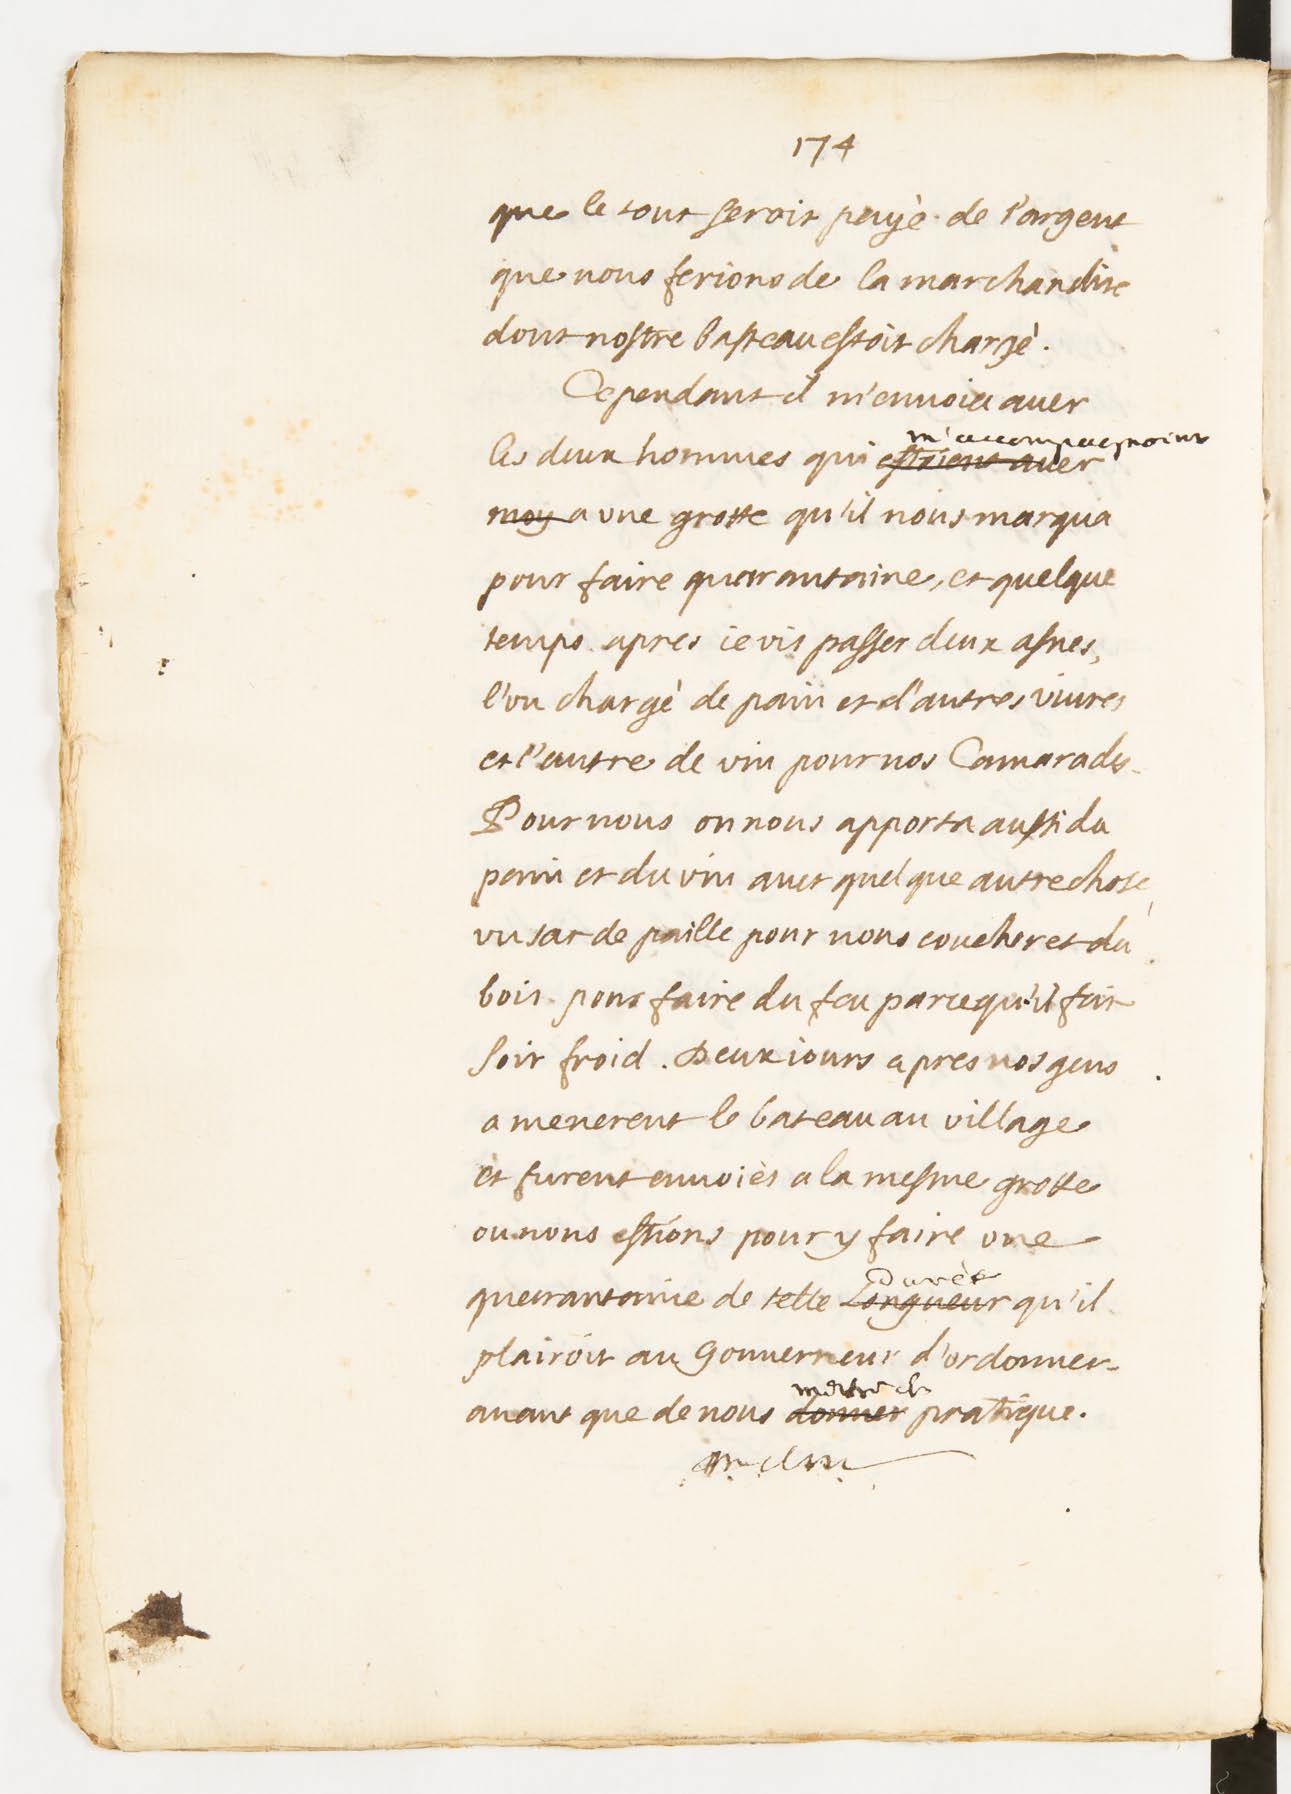 174
que le tout seroit payè de l'argent
que nous ferions de la marchandise
dont nostre basteau estoit chargè.
Cependant il m'enuoia auec
les deux hommes qui m'accompagnoint estoient auec
moy a vne grotte qu'il nous marqua
pour faire quarantaine, et quelque
temps apres ie vis passer deux asnes,
l'vn chargè de pain et d'autres viures
et l'autre de vin pour nos Camarades.
Pour nous on nous apporta aussi du
pain et du vin auec quelque autre chose,
vn sac de paille pour nous coucher et du
bois pour faire du feu parcequ'il fai-
soit froid. Deux iours apres nos gens
amenerent le bateau au village
et furent enuoiès a la mesme grotte
ou nous estions pour y faire vne
quarantaine de telle Durèe Longueur qu'il
plairoit au Gouuerneur d'ordonner
auant que de nous mettre de donner pratique.